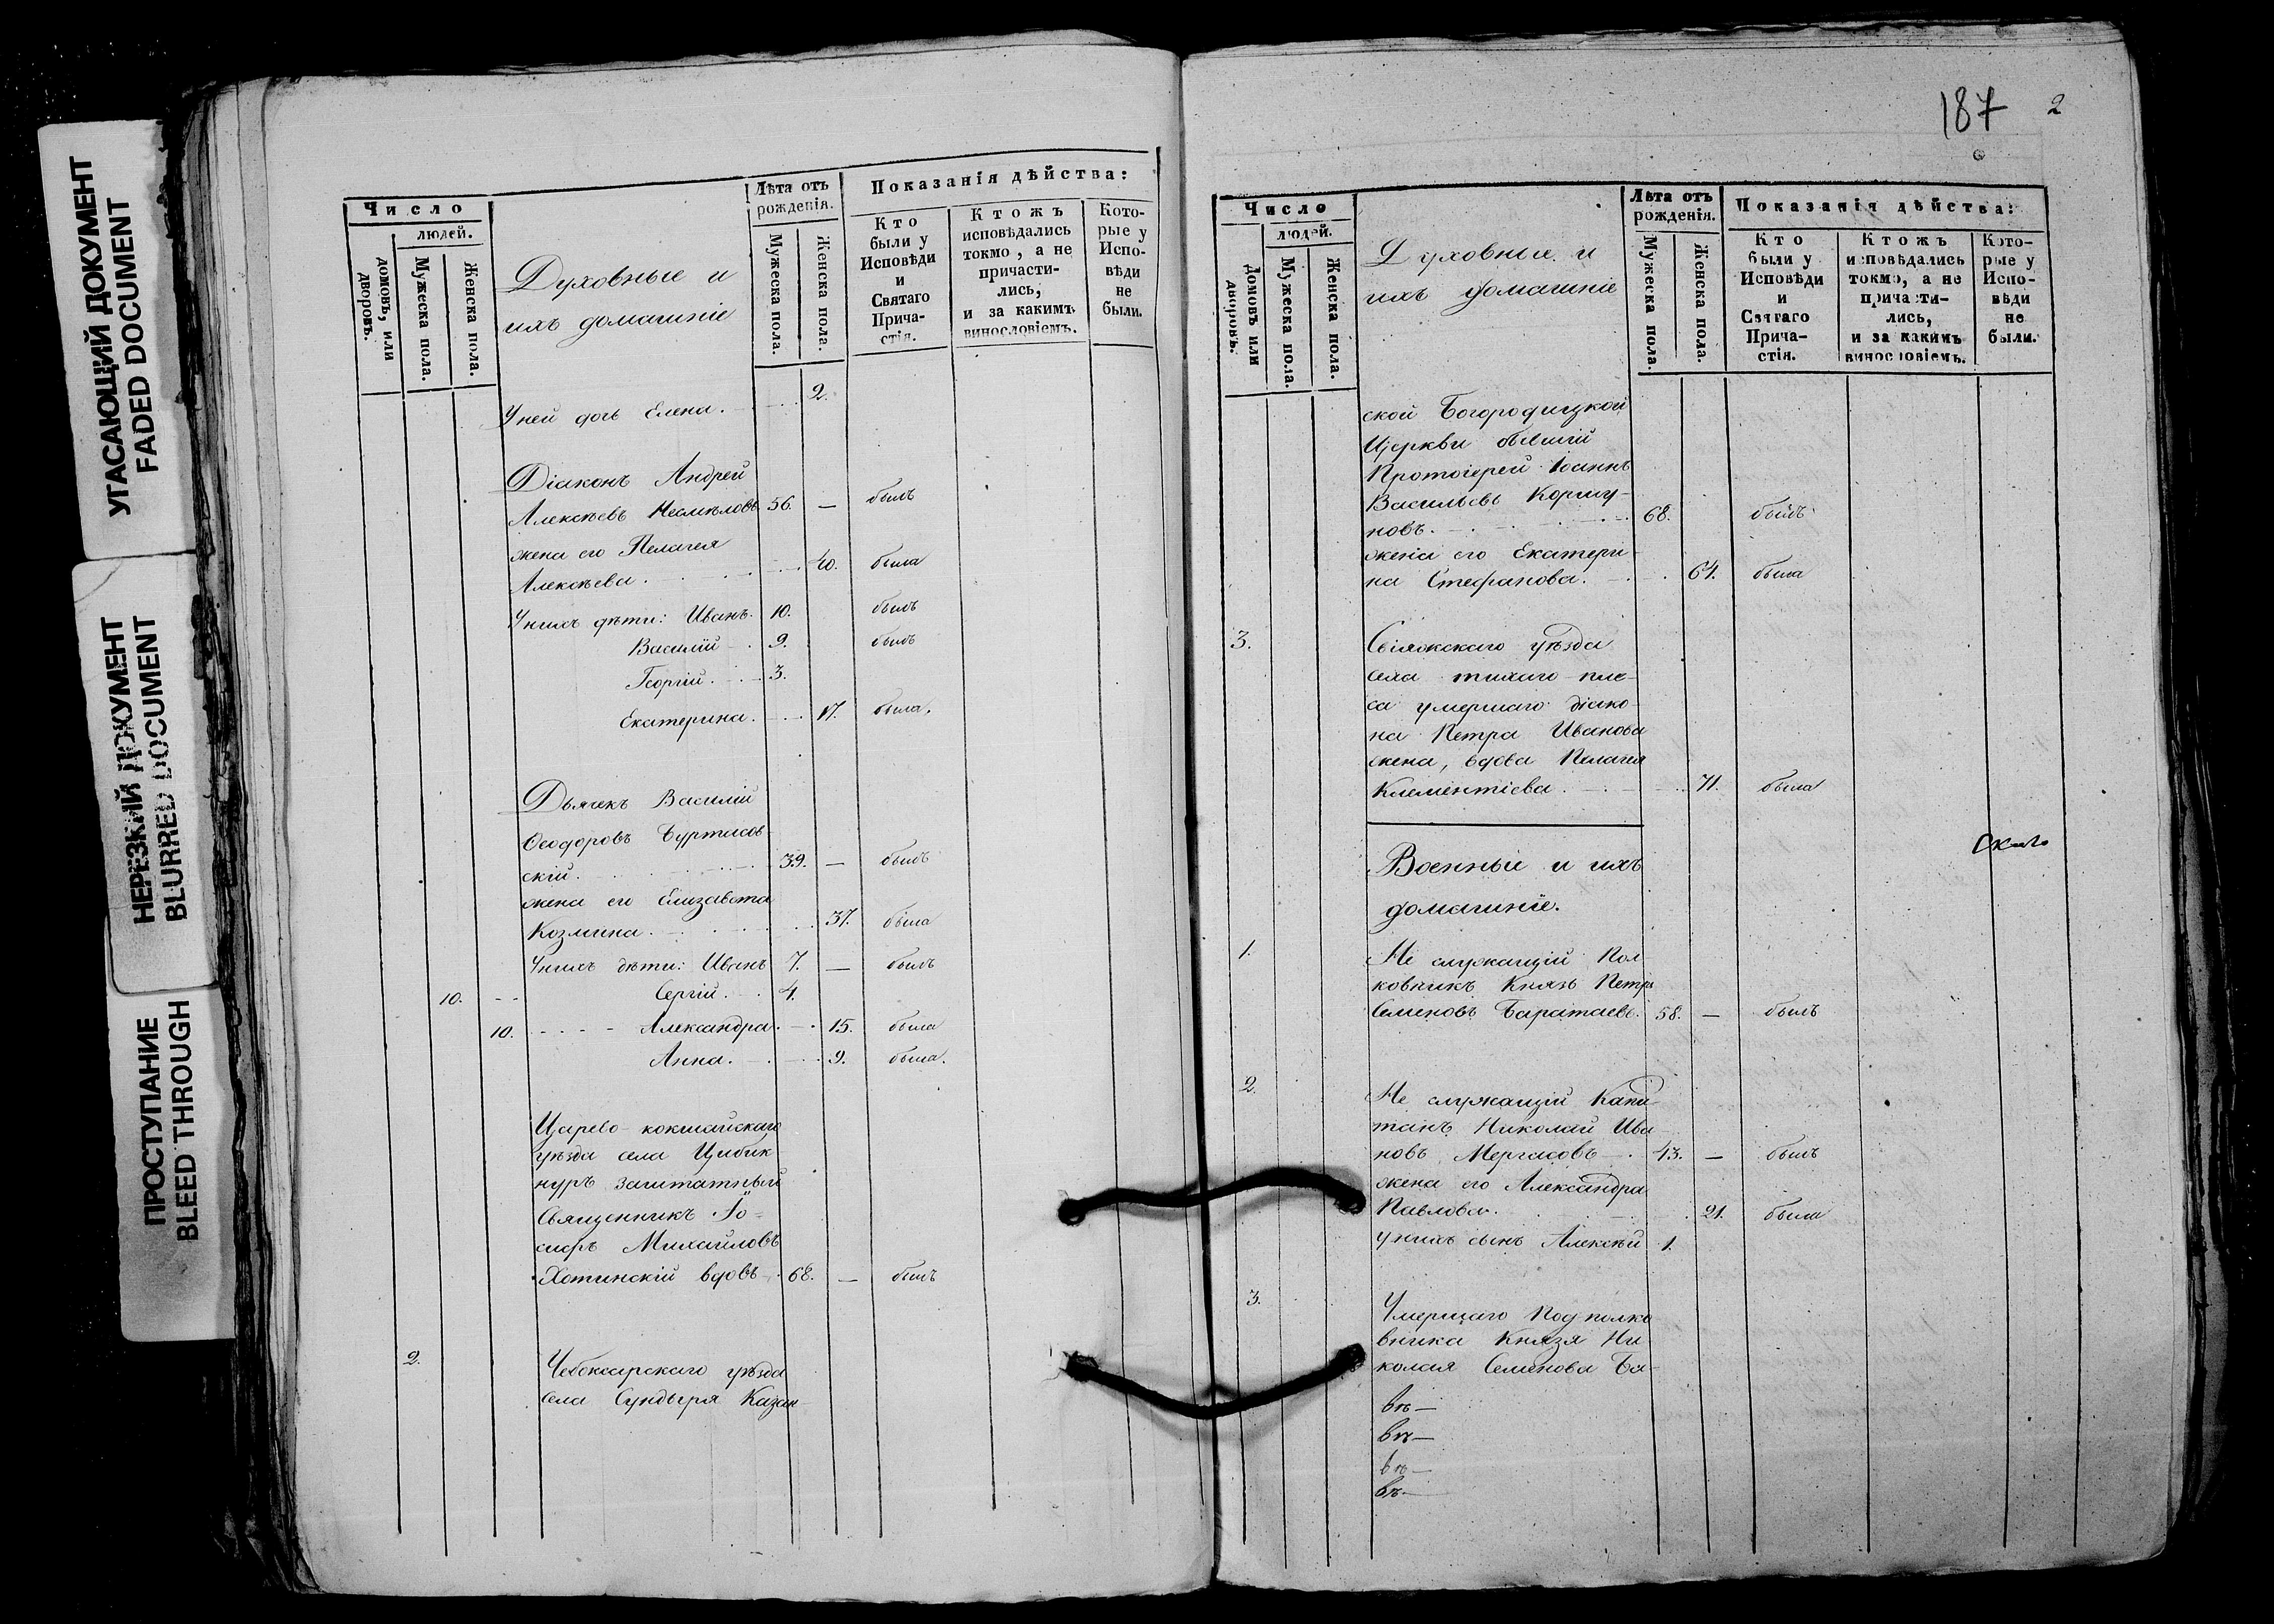 УГАСАЮЩИЙ ДОКУМЕНТ
FADED DOCUMENT
НЕРЕЗКИЙ ДОКУМЕНТ
BLURRED DOCUMENT
ПРОСТУПАНИЕ
BLEED THROUGH
Число
людей.
домовъ, или дворовъ.
Мужеска пола.
Женска пола.
Духовные и
ихъ домашніе
Лѣта отъ
рожденія.
Мужеска пола.
Женска пола.
Показанія дѣйства:
Кто
были у
Исповѣди
и
Святаго
Прича-
стія.
Ктожъ
исповѣдались
токмо, а не
причасти-
лись,
и за какимъ
винословіемъ.
Кото-
рые у
Испо-
вѣди
не
были.
У ней дочь Елена. 2.
Діаконъ Андрей
Алексѣевъ Несмѣловъ 56. — былъ
жена его Пелагея
Алексѣева. 40. была
У нихъ дѣти: Иванъ. 10. былъ
Василій 9. былъ
Георгій. 3.
Екатерина. 17. была.
Дьячекъ Василій
Ѳеодоровъ Буртасов-
скій. 39. — былъ
жена его Елизавета
Козмина. 37. была
У нихъ дѣти: Иванъ 7. — былъ
10. Сергій. 4.
10. Александра. 15. была
Анна. 9. была.
Царево-кокшайскаго
уѣзда села Цибик-
нуръ заштатный
Священникъ Іо-
сифъ Михайловъ
Хотинскій вдовъ 68. — былъ
2. Чебоксарскаго уѣзда
села Сундыря Казан-
187 2
Число
людей.
Домовъ или дворовъ.
Мужеска пола.
Женска пола.
Духовные и
ихъ домашніе
Лѣта отъ
рожденія.
Мужеска пола.
Женска пола.
Показанія дѣйства:
Кто
были у
Исповѣди
и
Святаго
Прича-
стія.
Ктожъ
исповѣдались
токмо, а не
причасти-
лись,
и за какимъ
винословіемъ.
Кото-
рые у
Испо-
вѣди
не
были.
ской Богородицкой
Церкви бывшій
Протоіерей Іоаннъ
Васильевъ Коршу-
новъ. 68. былъ
жена его Екатери-
на Стефанова. 64. была
3. Свіяжскаго уѣзда
села тихаго пле-
са умершаго діако-
на Петра Иванова
жена, вдова Пелагея
Клементіева. 71. была
Военные и ихъ
домашніе.
1. Не служащій Пол-
ковникъ Князь Петръ
Семеновъ Баратаевъ. 58. — былъ
2. Не служащій Капи-
танъ Николай Ива-
новъ Мергасовъ 43. — былъ
жена его Александра
Павлова. 21. была
у нихъ сынъ Алексѣй 1.
3. Умершаго Подполко-
вника Князя Ни-
колая Семенова Ба-